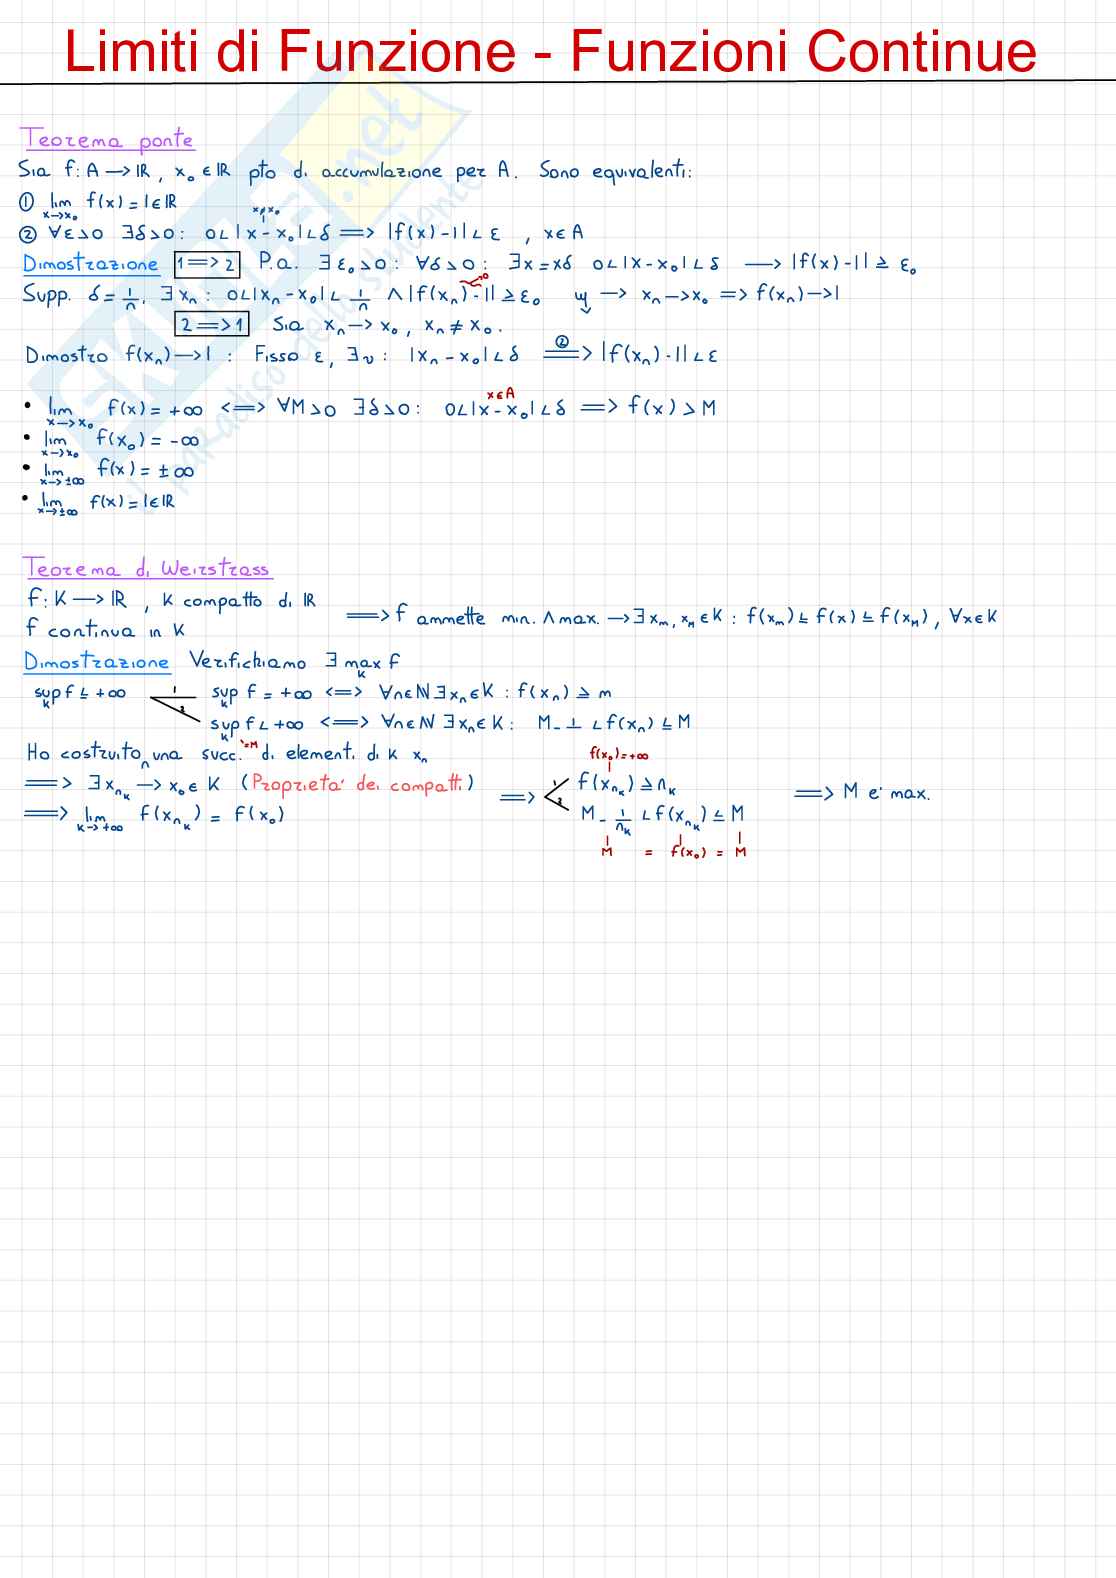 Limiti di Funzione - Funzioni Continue
Teorema ponte
Sia f: A → ℝ, x₀ ∈ ℝ pto di accumulazione per A. Sono equivalenti:
① lim x→x₀ f(x) = l ∈ ℝ
x≠x₀
② ∀ε>0 ∃δ>0: 0<|x-x₀|<δ ⟹ |f(x)-l|<ε , x∈A
Dimostrazione 1⟹2 P.a. ∃ε₀>0: ∀δ>0: ∃x=xδ 0<|x-x₀|<δ ⟶ |f(x)-l| ≥ ε₀
Supp. δ = 1/n, ∃xₙ: 0<|xₙ-x₀|< 1/n ∧ |f(xₙ)-l| ≥ ε₀ → xₙ→x₀ ⟹ f(xₙ)→l
2⟹1 Sia xₙ→x₀, xₙ≠x₀.
Dimostro f(xₙ)→l : Fisso ε, ∃ν: |xₙ-x₀|<δ ②⟹ |f(xₙ)-l|<ε
• lim x→x₀ f(x) = +∞ ⟺ ∀M>0 ∃δ>0: 0<|x-x₀|<δ ⟹ f(x)>M
x∈A
• lim x→x₀ f(x₀) = -∞
• lim x→±∞ f(x) = ±∞
• lim x→±∞ f(x) = l∈ℝ
Teorema di Weirstrass
f: K → ℝ , K compatto di ℝ
f continua in K
⟹ f ammette min. ∧ max. → ∃xₘ, x_M ∈ K : f(xₘ) ≤ f(x) ≤ f(x_M), ∀x∈K
Dimostrazione Verifichiamo ∃ max_K f
sup_K f ≤ +∞ 1 sup_K f = +∞ ⟺ ∀n∈ℕ ∃xₙ∈K : f(xₙ) ≥ m
2 sup_K f < +∞ ⟺ ∀n∈ℕ ∃xₙ∈K: M - 1/n < f(xₙ) ≤ M
=M
Ho costruito una succ. di elementi di K xₙ
⟹ ∃x_{n_k} → x₀ ∈ K (Proprietà dei compatti)
⟹ lim k→+∞ f(x_{n_k}) = f(x₀)
f(x₀)=+∞
⟹ 1 f(x_{n_k}) ≥ n_k
2 M - 1/n_k < f(x_{n_k}) ≤ M
M = f(x₀) = M
⟹ M è max.
SKUOLA.net
il paradiso dello studente